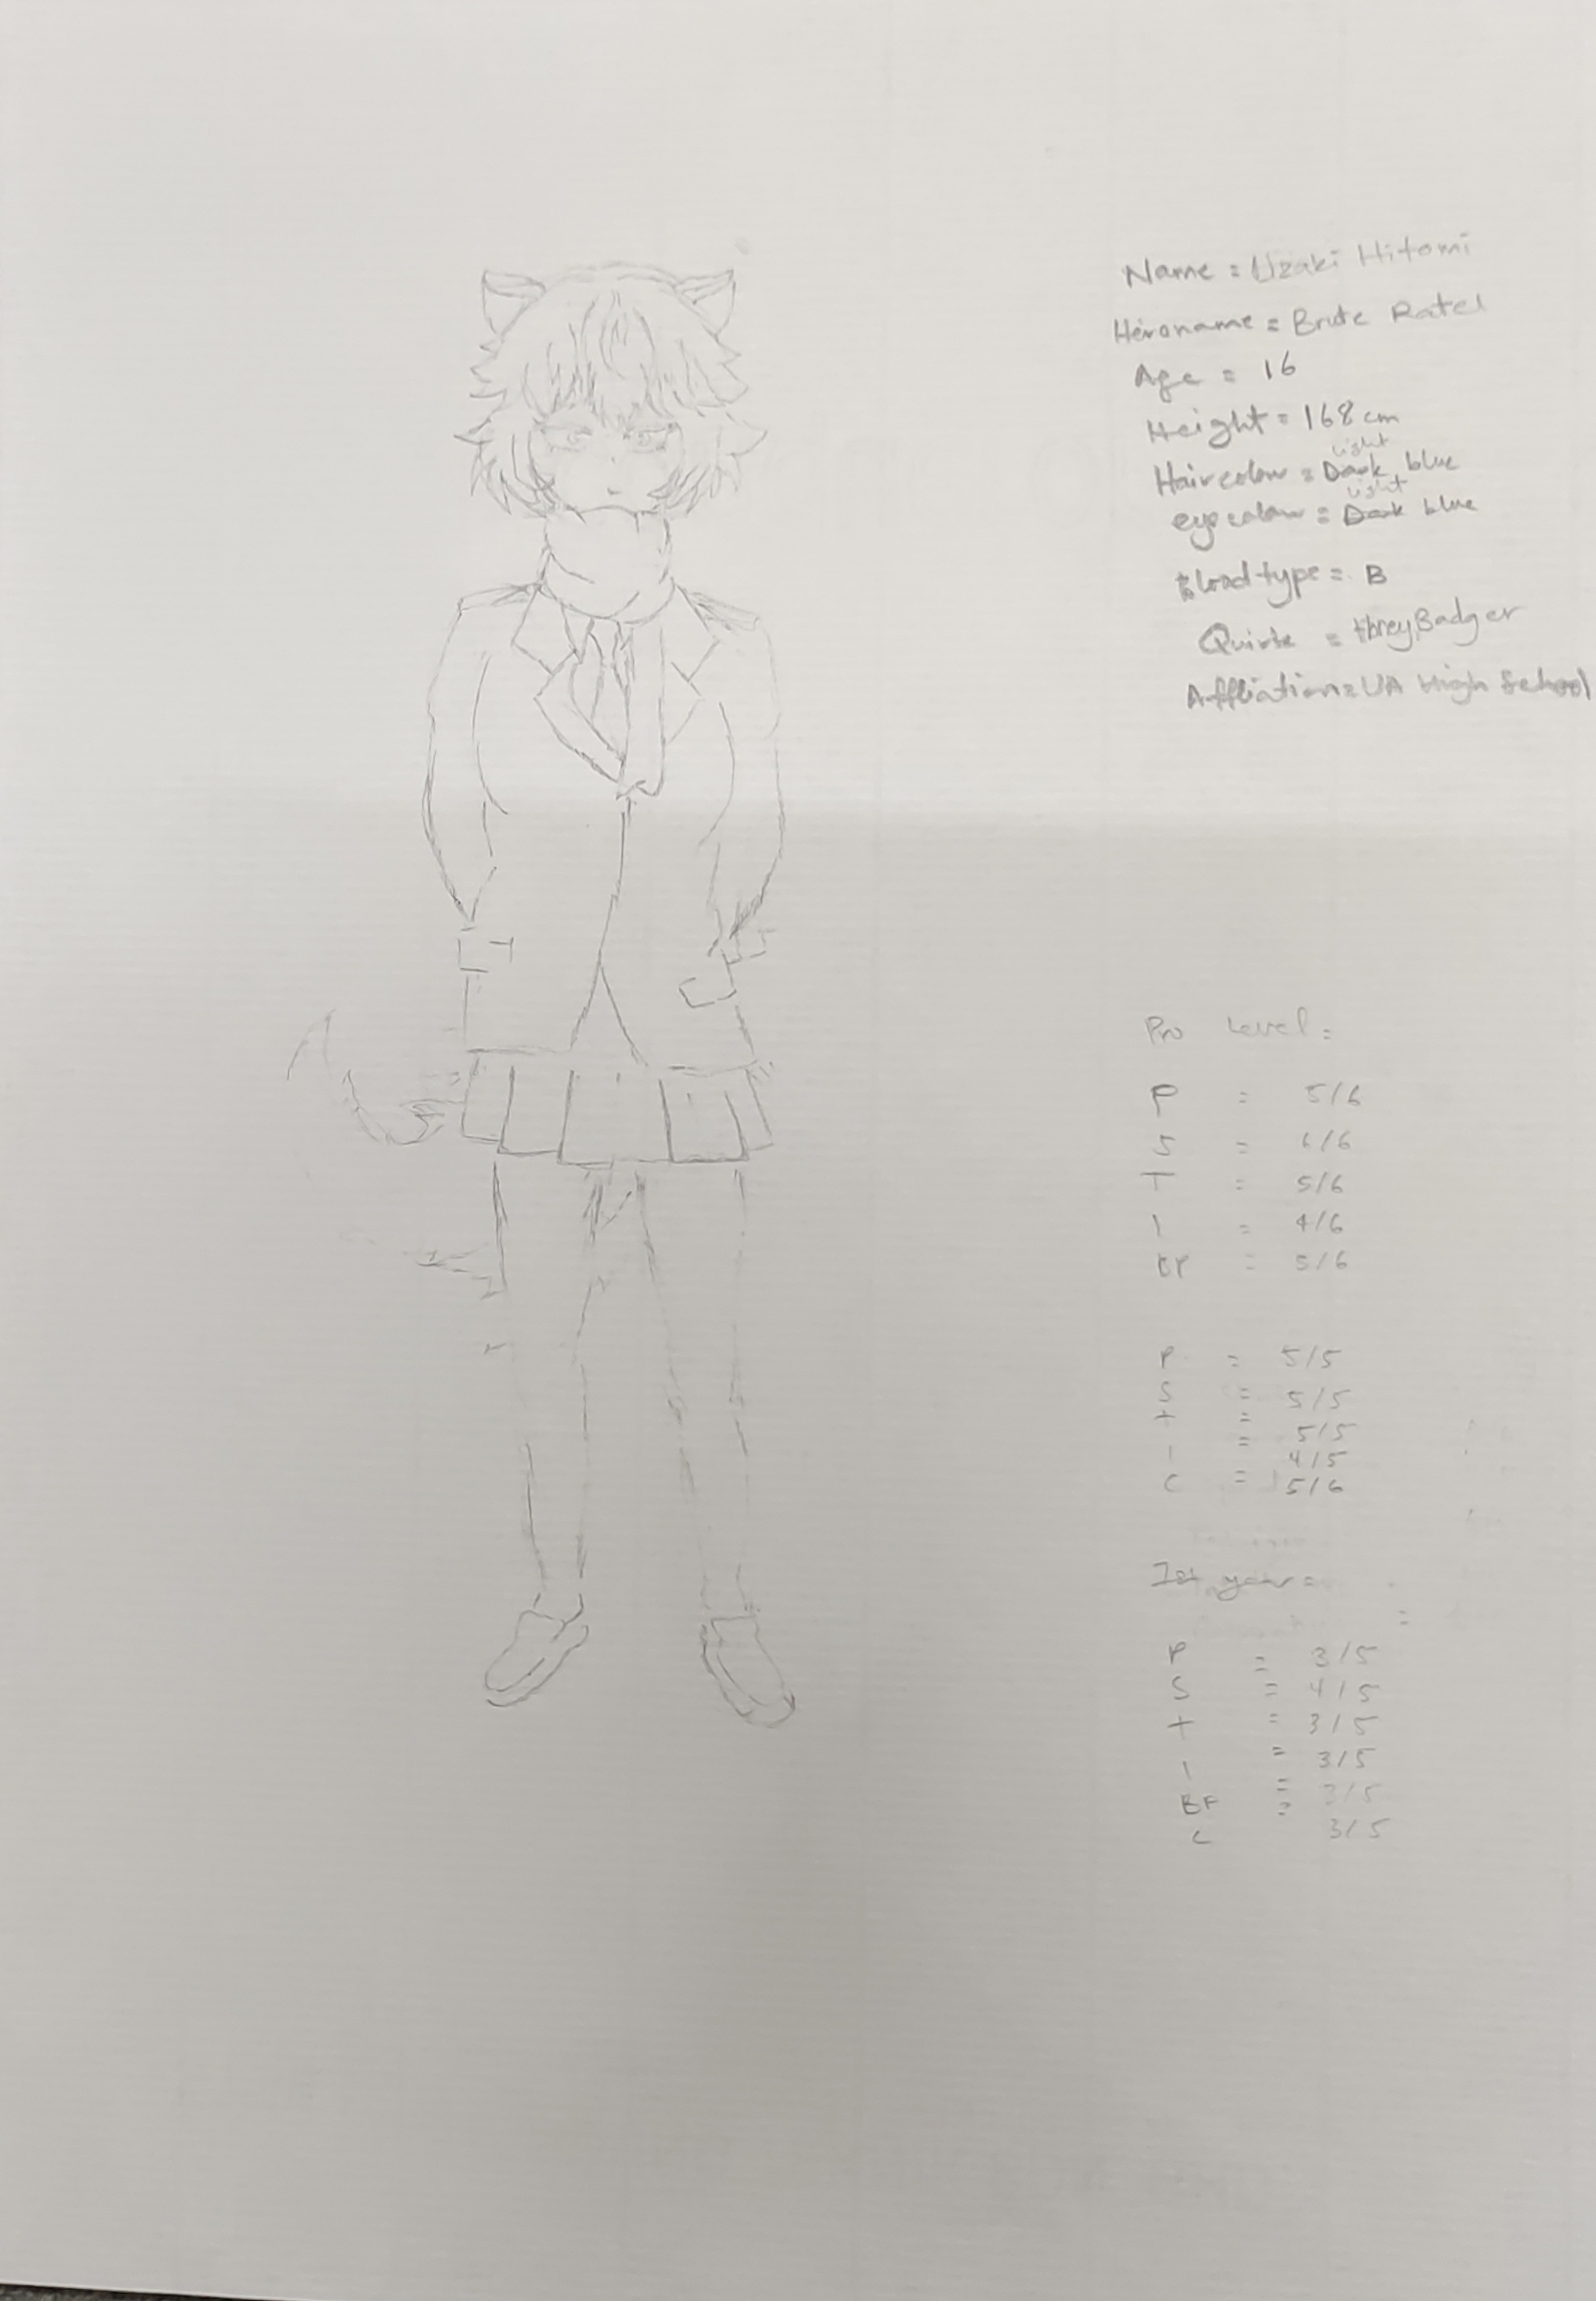 Name = Uzaki Hitomi
Heroname = Brute Ratel
Age = 16
Height = 168 cm
light
Haircolour = Dark blue
light
eye colour = Dark blue
Bloodtype = B
Quirk = HoneyBadger
Affliation = UA High School
Pro Level =
P = 5/6
S = 6/6
T = 5/6
I = 4/6
= 5/6
P = 5/5
S = 5/5
T = 5/5
I = 4/5
C = 5/6
1st year =
=
P = 3/5
S = 4/5
T = 3/5
I = 3/5
BF = 3/5
C = 3/5